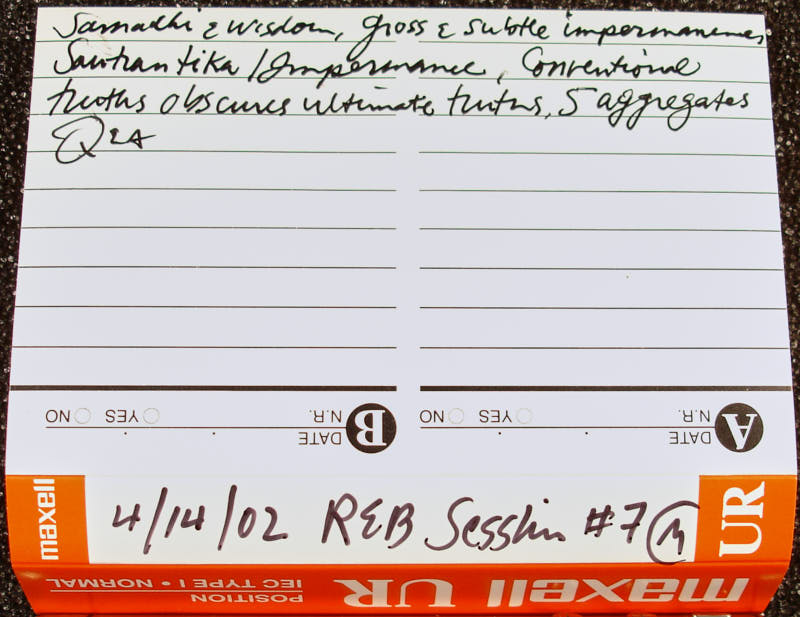 Samadhi & wisdom, gross & subtle impermanence,
Sautrantika / Impermance, Conventional
truths obscures ultimate truths, 5 aggregates
Q&A
B DATE N.R. YES NO
A DATE N.R. YES NO
maxell 4/14/02 REB Sesshin #7 M UR
maxell UR POSITION IEC TYPE I • NORMAL